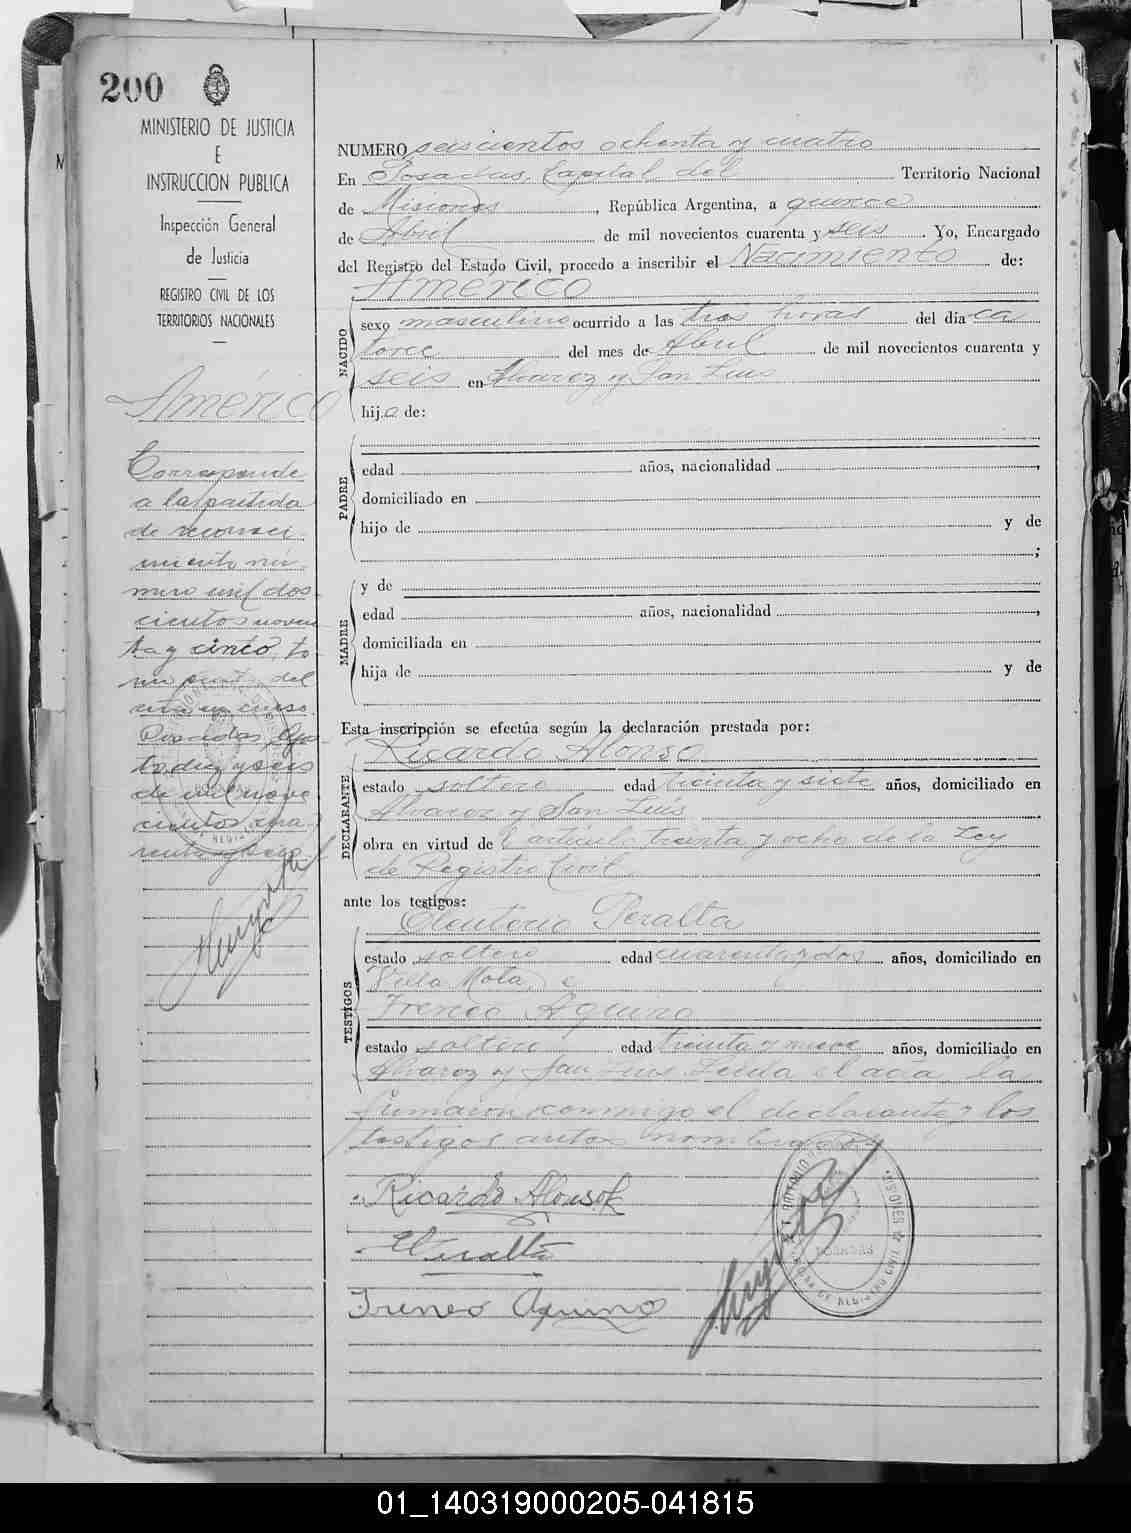 200
MINISTERIO DE JUSTICIA
E
INSTRUCCION PUBLICA
Inspección General
de Justicia
REGISTRO CIVIL DE LOS
TERRITORIOS NACIONALES
Américo
Corresponde
a la partida
de reconoci
miento nú
mero mil dos
cientos noven
ta y cinco, to-
mo del
año en curso.
Posadas, Agos-
to diez y seis
de mil nove
cientos cua-
renta y seis
NUMERO seiscientos ochenta y cuatro
En Posadas, Capital del Territorio Nacional
de Misiones, República Argentina, a quince
de Abril de mil novecientos cuarenta y seis. Yo, Encargado
del Registro del Estado Civil, procedo a inscribir el Nacimiento de:
Américo
NACIDO
sexo masculino ocurrido a las tres horas del día ca
torce del mes de Abril de mil novecientos cuarenta y
seis en Alvarez y San Luis
hijo de:
PADRE
edad años, nacionalidad ,
domiciliado en
hijo de y de
;
MADRE
y de
edad años, nacionalidad ,
domiciliada en
hija de y de
Esta inscripción se efectúa según la declaración prestada por:
DECLARANTE
Ricardo Alonso
estado soltero edad treinta y siete años, domiciliado en
Alvarez y San Luis
obra en virtud de l artículo treinta y ocho de la Ley
de Registro Civil.
ante los testigos:
TESTIGOS
Eleuterio Peralta
estado soltero edad cuarenta y dos años, domiciliado en
Villa Mota, e
Ireneo Aquino
estado soltero edad treinta y nueve años, domiciliado en
Alvarez y San Luis. Leída el acta, la
firmaron conmigo el declarante y los
testigos antes nombrados
Ricardo Alonso
EPeralta
Ireneo Aquino
POSADAS
01_140319000205-041815